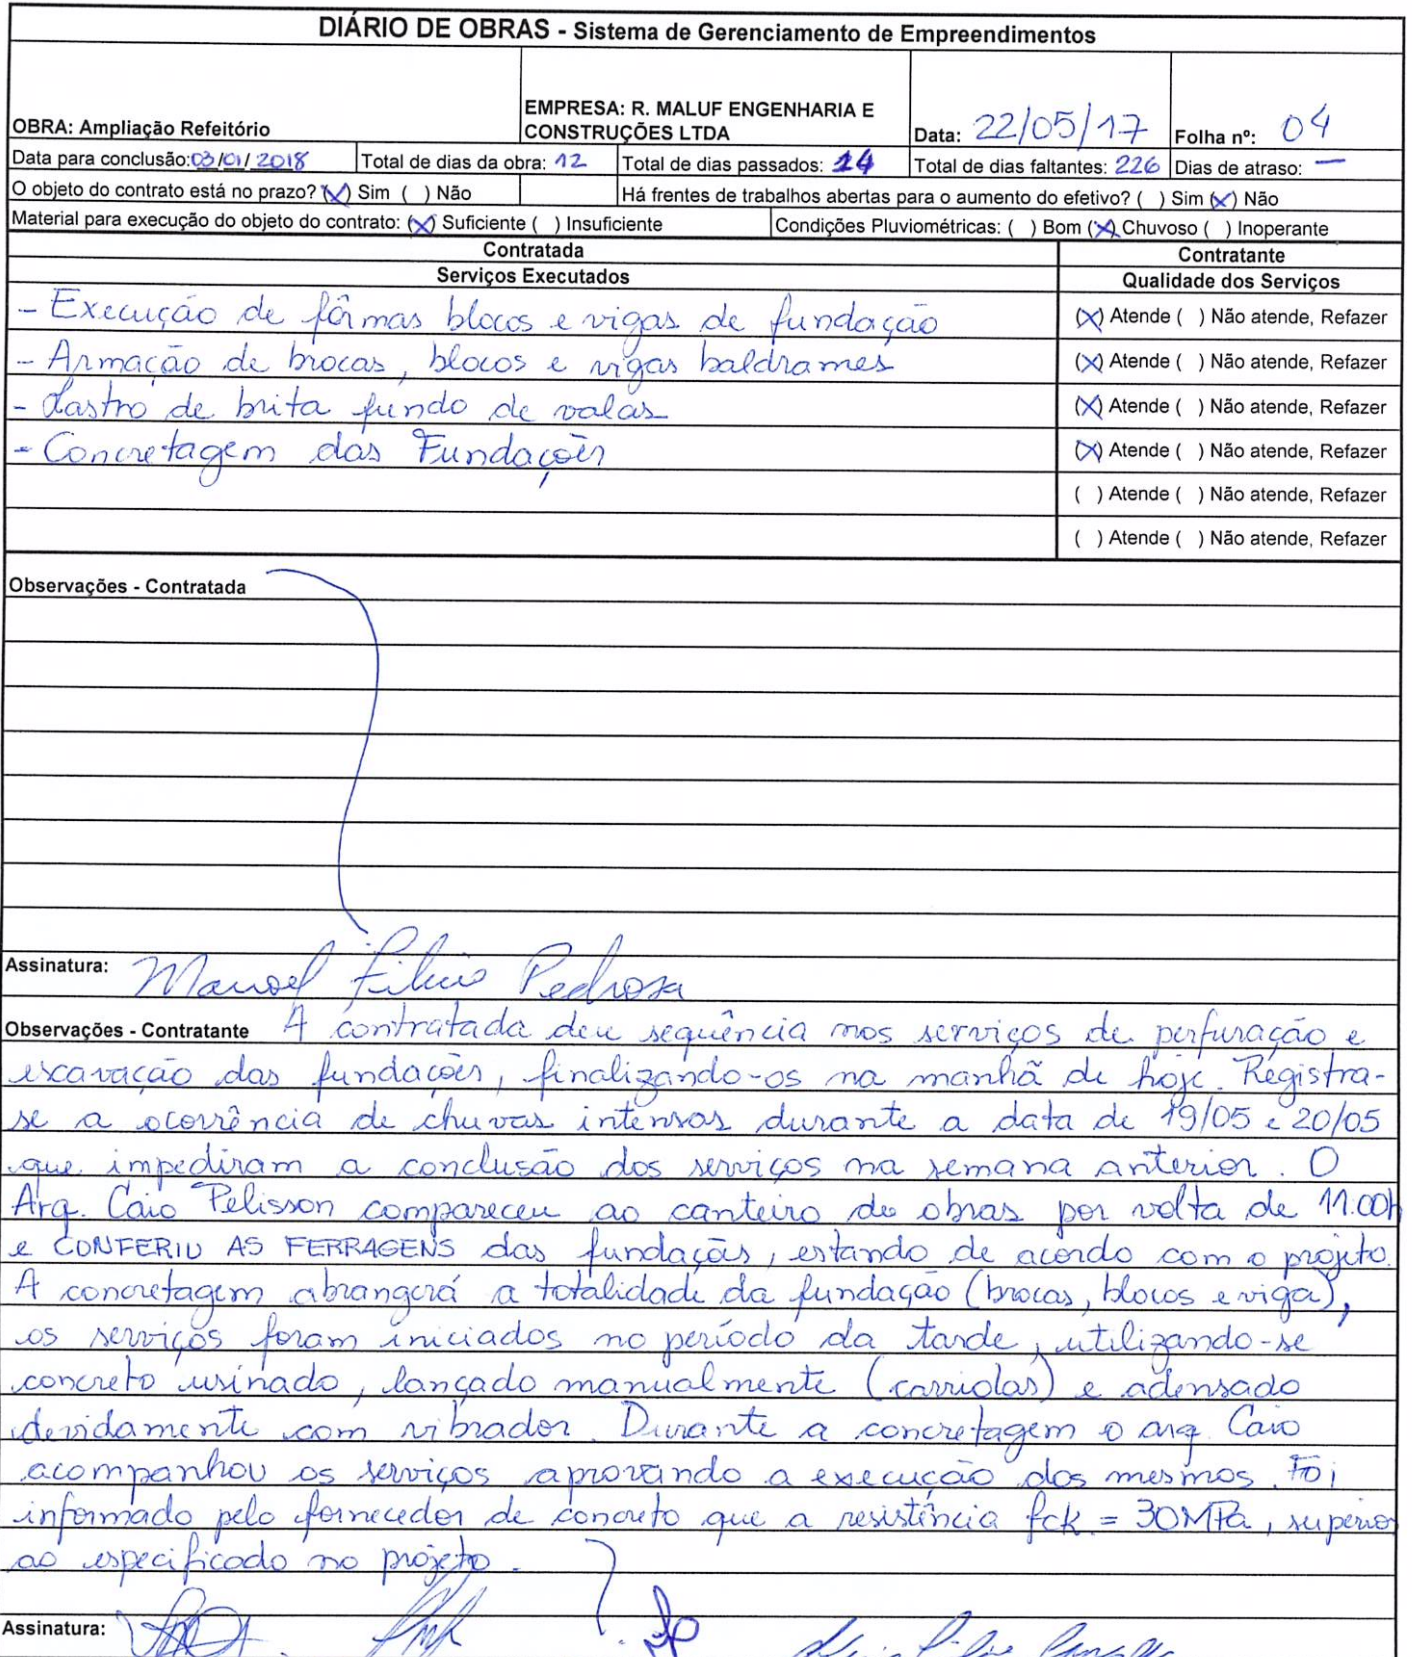 DIÁRIO DE OBRAS - Sistema de Gerenciamento de Empreendimentos
OBRA: Ampliação Refeitório
EMPRESA: R. MALUF ENGENHARIA E
CONSTRUÇÕES LTDA
Data: 22/05/17
Folha nº: 04
Data para conclusão: 03/01/2018 Total de dias da obra: 12 Total de dias passados: 14 Total de dias faltantes: 226 Dias de atraso: —
O objeto do contrato está no prazo? (X) Sim ( ) Não Há frentes de trabalhos abertas para o aumento do efetivo? ( ) Sim (X) Não
Material para execução do objeto do contrato: (X) Suficiente ( ) Insuficiente Condições Pluviométricas: ( ) Bom (X) Chuvoso ( ) Inoperante
Contratada Contratante
Serviços Executados Qualidade dos Serviços
- Execução de fôrmas blocos e vigas de fundação (X) Atende ( ) Não atende, Refazer
- Armação de brocas, blocos e vigas baldrames (X) Atende ( ) Não atende, Refazer
- Lastro de brita fundo de valas (X) Atende ( ) Não atende, Refazer
- Concretagem das Fundações (X) Atende ( ) Não atende, Refazer
( ) Atende ( ) Não atende, Refazer
( ) Atende ( ) Não atende, Refazer
Observações - Contratada
Assinatura: Manoel Pedrosa
Observações - Contratante A contratada deu sequência nos serviços de perfuração e
escavação das fundações, finalizando-os na manhã de hoje. Registra-
se a ocorrência de chuvas intensas durante a data de 19/05 e 20/05
que impediram a conclusão dos serviços na semana anterior. O
Arq. Caio Pelisson compareceu ao canteiro de obras por volta de 11:00h
e CONFERIU AS FERRAGENS das fundações, estando de acordo com o projeto.
A concretagem abrangerá a totalidade da fundação (brocas, blocos e viga),
os serviços foram iniciados no período da tarde, utilizando-se
concreto usinado, lançado manualmente (carriolas) e adensado
devidamente com vibrador. Durante a concretagem o arq. Caio
acompanhou os serviços aprovando a execução dos mesmos. Foi
informado pelo fornecedor de concreto que a resistência fck = 30MPa, superior
ao especificado no projeto.
Assinatura: